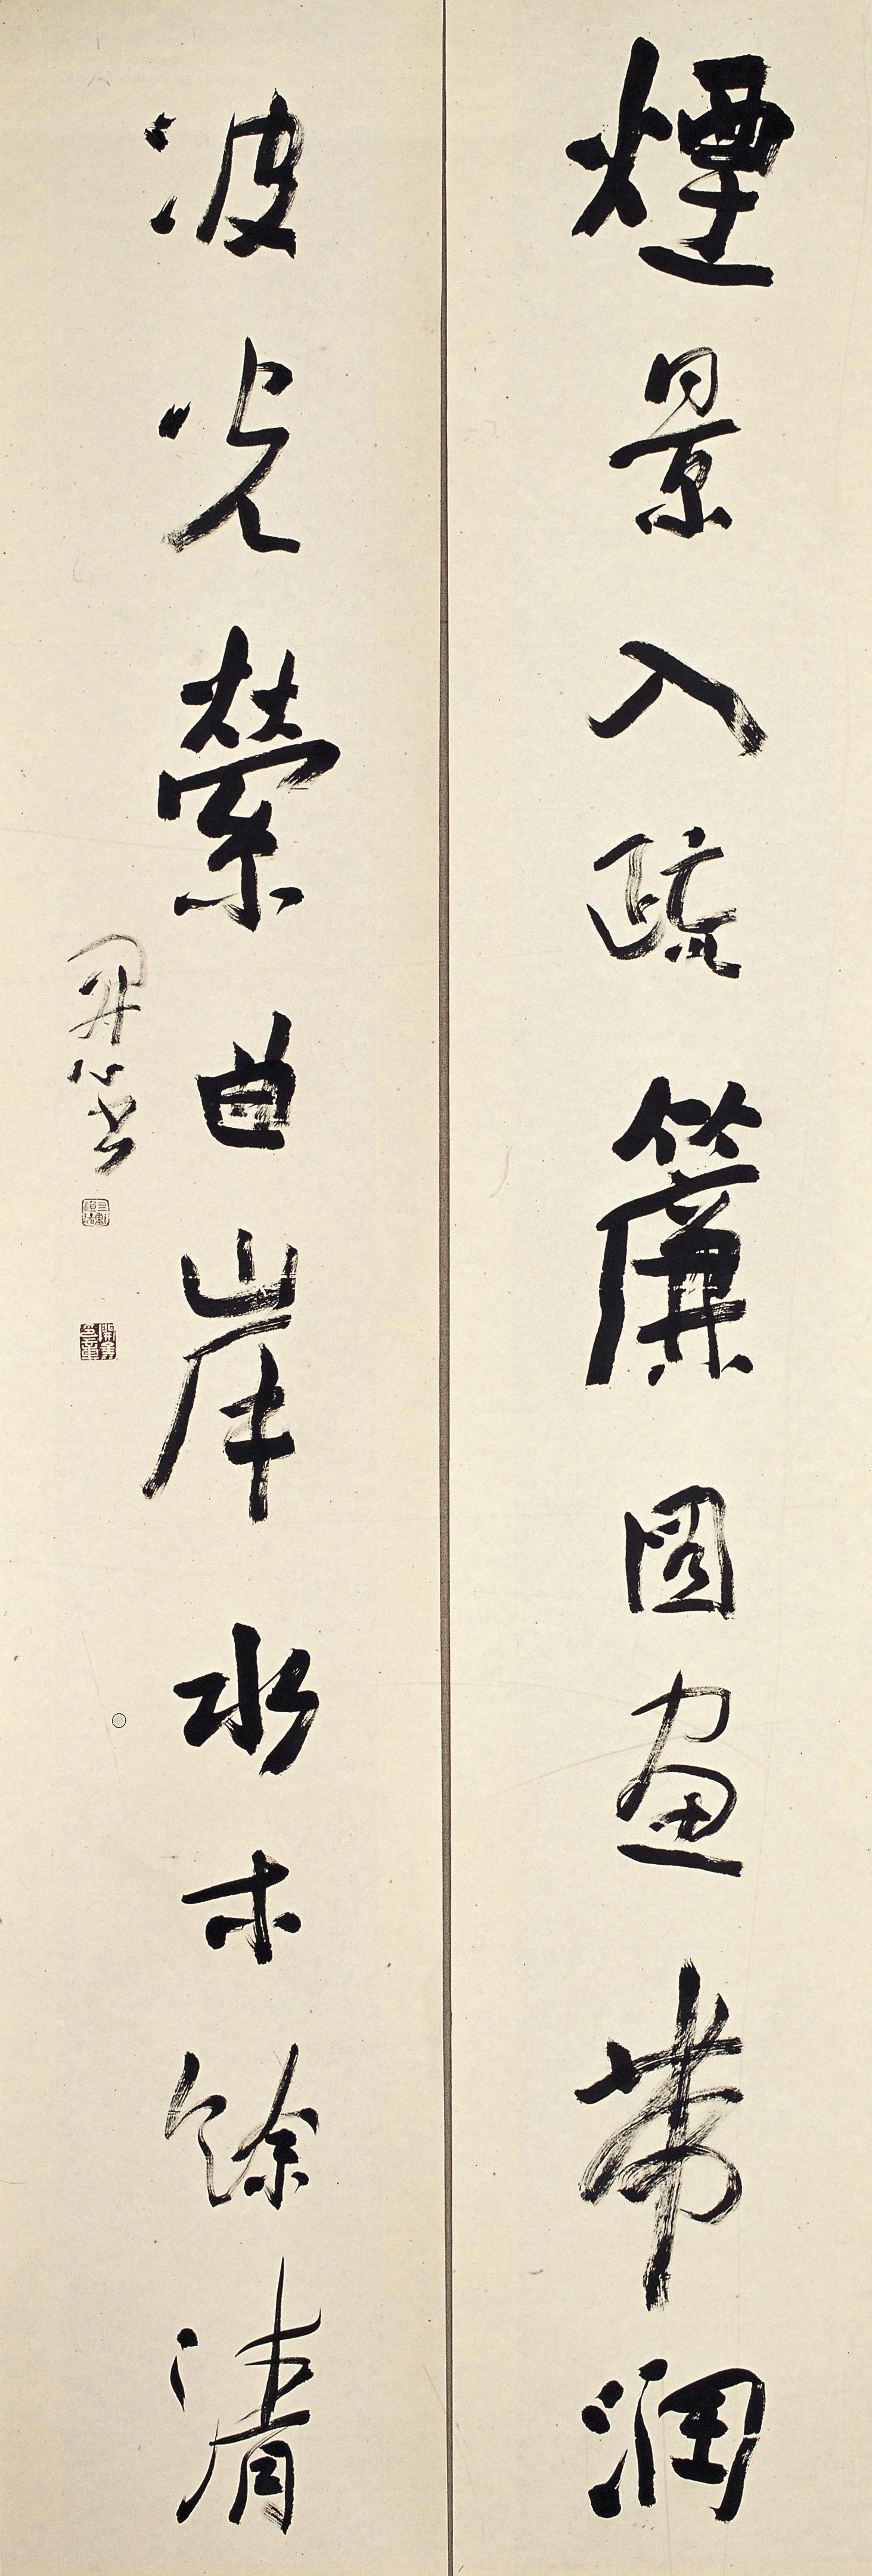 煙景入疏簾圖畫帶潤
波光縈曲岸水木餘清
開